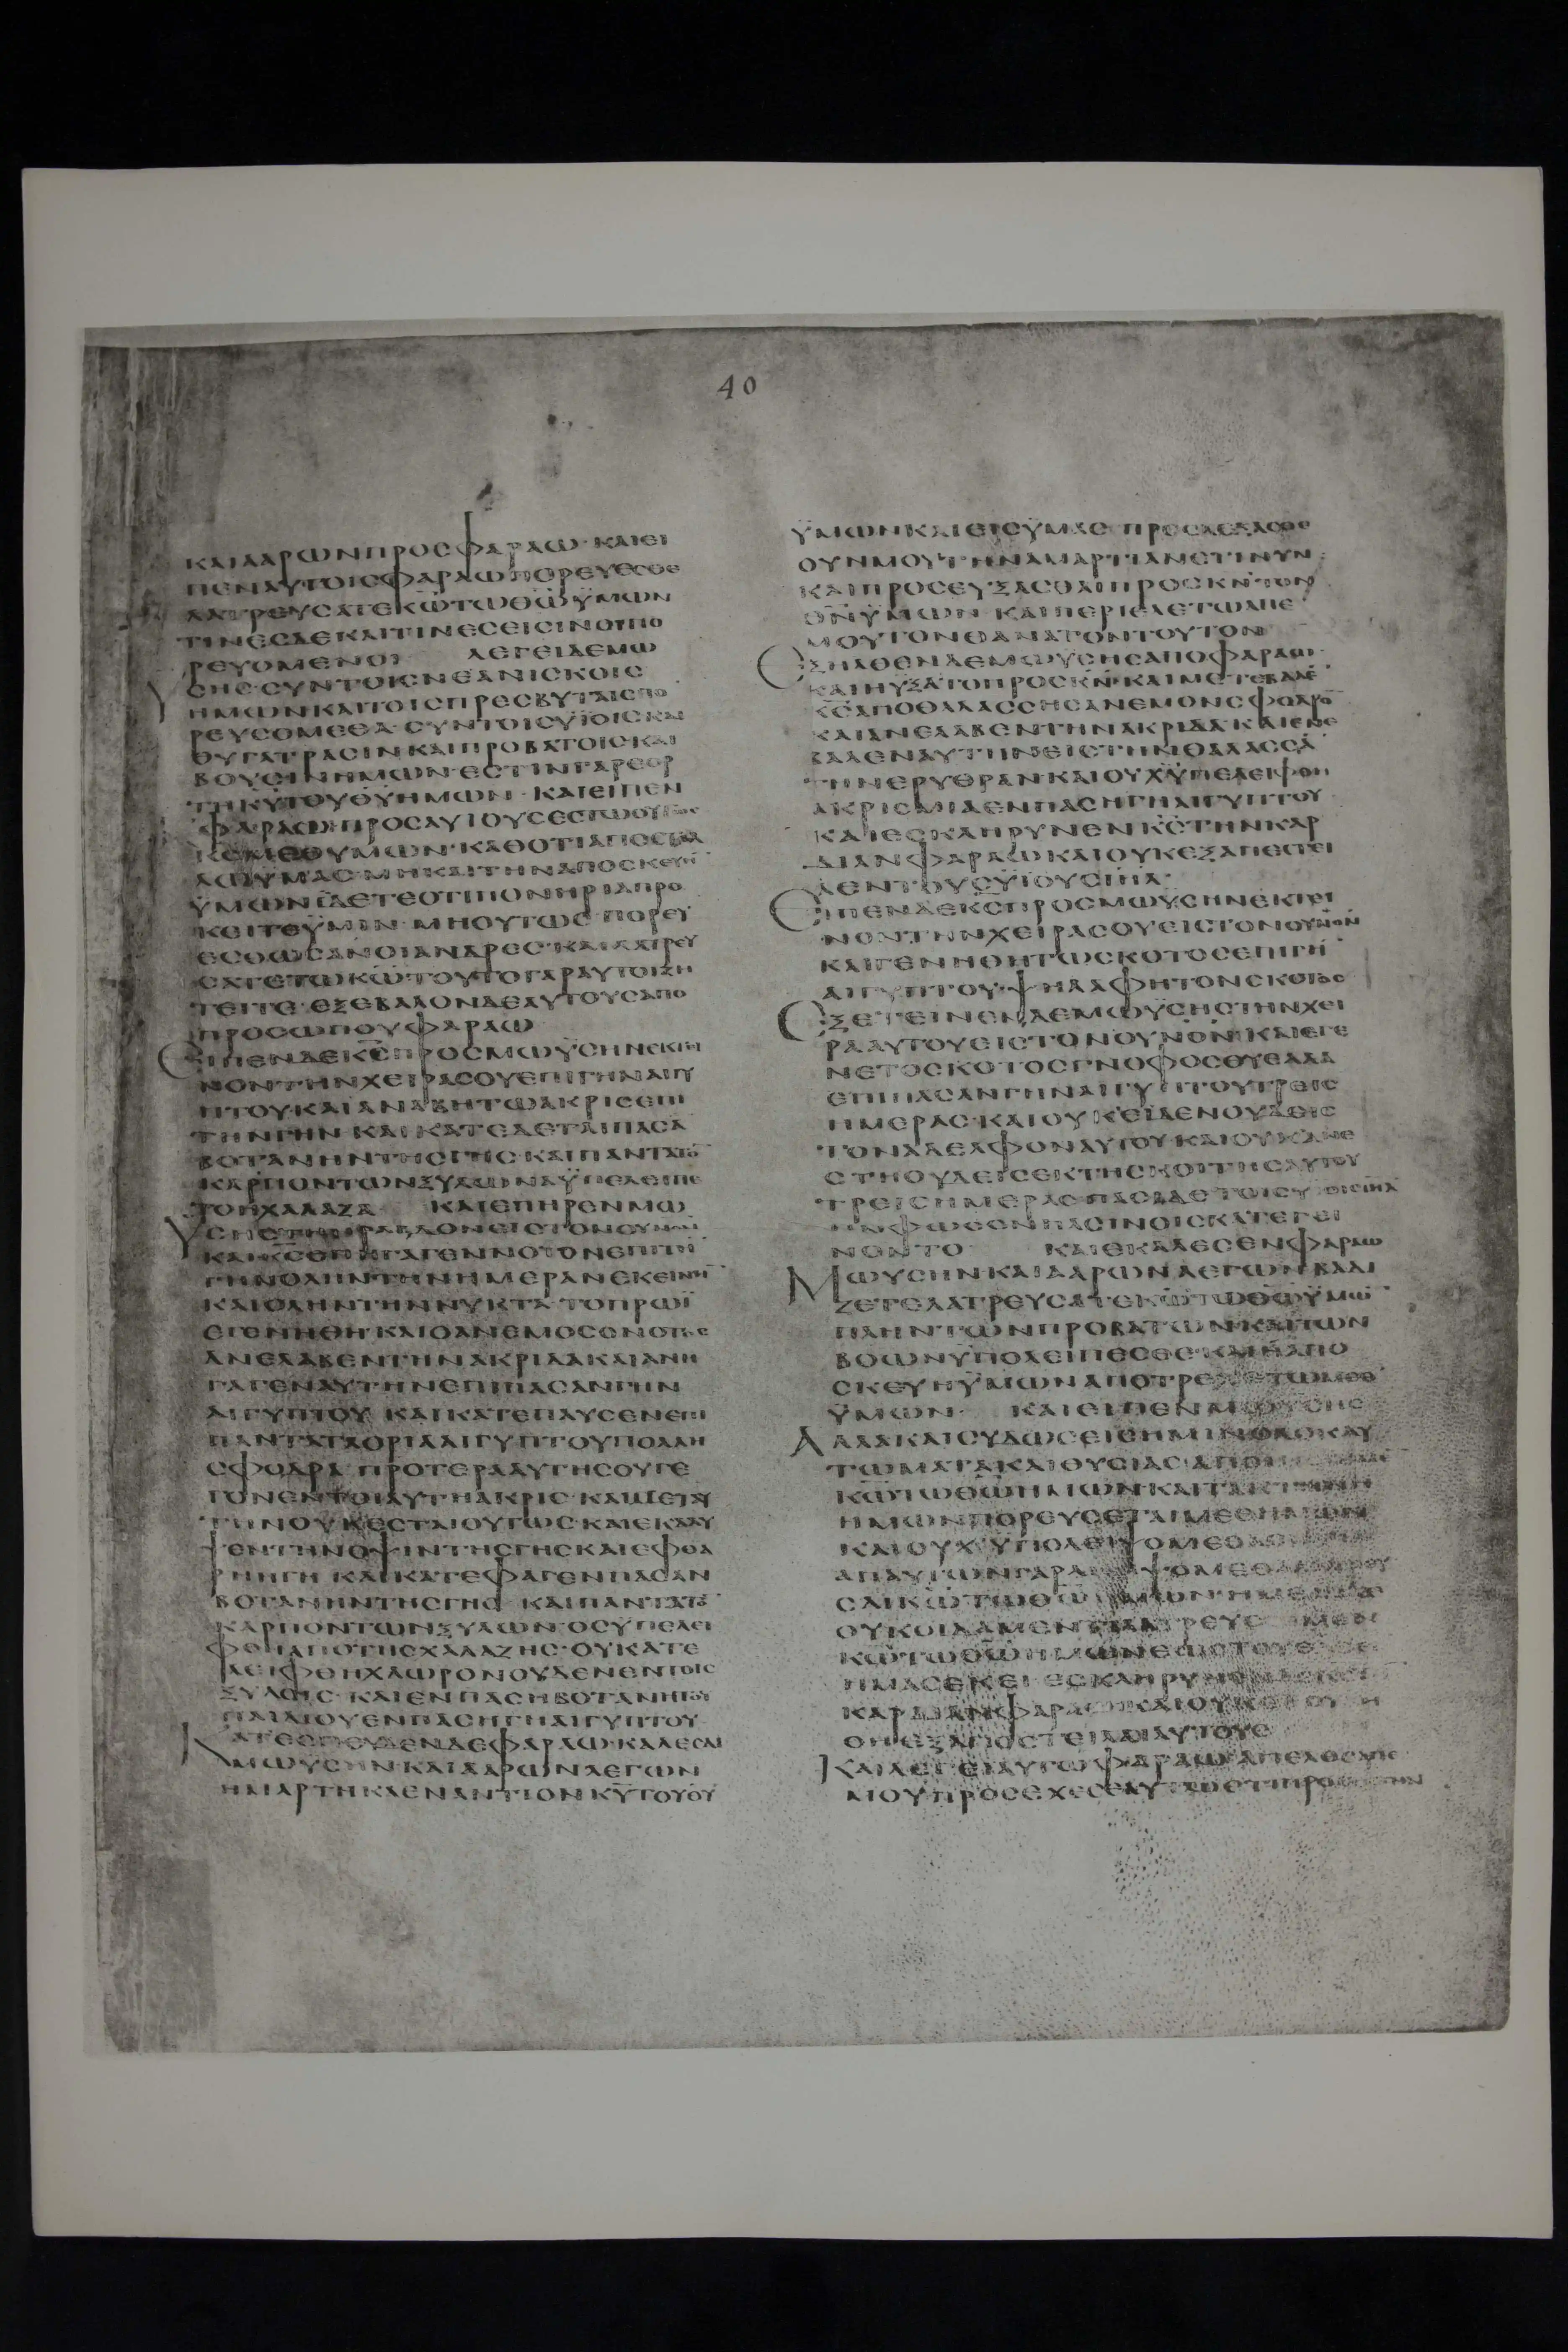 40
ΚΑΙΑΑΡΩΝΠΡΟΣΦΑΡΑΩ·ΚΑΙΕΙ
ΠΕΝΑΥΤΟΙΣΦΑΡΑΩΠΟΡΕΥΕΣΘΕ
ΛΑΤΡΕΥΣΑΤΕΚ̅Ω̅ΤΩΘ̅Ω̅ΫΜΩΝ
ΤΙΝΕΣΔΕΚΑΙΤΙΝΕΣΕΙΣΙΝΟΙΠΟ
ΡΕΥΟΜΕΝΟΙ ΛΕΓΕΙΔΕΜΩ
ΫΣΗΣ·ΣΥΝΤΟΙΣΝΕΑΝΙΣΚΟΙΣ
ΗΜΩΝΚΑΙΤΟΙΣΠΡΕΣΒΥΤΑΙΣΠΟ
ΡΕΥΣΟΜΕΘΑ·ΣΥΝΤΟΙΣΥΪΟΙΣΚΑΙ
ΘΥΓΑΤΡΑΣΙΝΚΑΙΠΡΟΒΑΤΟΙΣΚΑΙ
ΒΟΥΣΙΝΗΜΩΝ·ΕΣΤΙΝΓΑΡΕΟΡ
ΤΗΚ̅Υ̅ΤΟΥΘ̅Υ̅ΗΜΩΝ·ΚΑΙΕΙΠΕΝ
ΦΑΡΑΩΠΡΟΣΑΥΤΟΥΣΕΣΤΩΟΥΤΩΣ
Κ̅Σ̅ΜΕΘΥΜΩΝ·ΚΑΘΟΤΙΑΠΟΣΤΕΛ
ΛΩΫΜΑΣ·ΜΗΚΑΙΤΗΝΑΠΟΣΚΕΥΗ̅
ΫΜΩΝΪΔΕΤΕΟΤΙΠΟΝΗΡΙΑΠΡΟ
ΚΕΙΤΕΫΜΙΝ·ΜΗΟΥΤΩΣ·ΠΟΡΕΥ
ΕΣΘΩΣΑΝΟΙΑΝΔΡΕΣ·ΚΑΙΛΑΤΡΕΥ
ΣΑΤΕΤΩΚ̅Ω̅ΤΟΥΤΟΓΑΡΑΥΤΟΙΖΗ
ΤΕΙΤΕ·ΕΞΕΒΑΛΟΝΔΕΑΥΤΟΥΣΑΠΟ
ΠΡΟΣΩΠΟΥΦΑΡΑΩ
ΕΙΠΕΝΔΕΚ̅Σ̅ΠΡΟΣΜΩΫΣΗΝΕΚΤΙ
ΝΟΝΤΗΝΧΕΙΡΑΣΟΥΕΠΙΓΗΝΑΙΓΥ
ΠΤΟΥ·ΚΑΙΑΝΑΒΗΤΩΑΚΡΙΣΕΠΙ
ΤΗΝΓΗΝ·ΚΑΙΚΑΤΕΔΕΤΑΙΠΑΣΑ
ΒΟΤΑΝΗΝΤΗΣΓΗΣ·ΚΑΙΠΑΝΤΑΤΟ̅
ΚΑΡΠΟΝΤΩΝΞΥΛΩΝΑΫΠΕΛΕΙΠΕ
ΤΟΗΧΑΛΑΖΑ ΚΑΙΕΠΗΡΕΝΜΩ
ΚΑΙΚ̅Σ̅ΕΠΗΓΑΓΕΝΝΟΤΟΝΕΠΙΤΗ̅
ΓΗΝΟΛΗΝΤΗΝΗΜΕΡΑΝΕΚΕΙΝΗ̅
ΚΑΙΟΛΗΝΤΗΝΝΥΚΤΑ·ΤΟΠΡΩΪ
ΕΓΕΝΗΘΗ·ΚΑΙΟΑΝΕΜΟΣΟΝΟΤΟΣ
ΑΝΕΛΑΒΕΝΤΗΝΑΚΡΙΔΑΚΑΙΑΝΗ
ΓΑΓΕΝΑΥΤΗΝΕΠΙΠΑΣΑΝΓΗΝ
ΑΙΓΥΠΤΟΥ ΚΑΙΚΑΤΕΠΑΥΣΕΝΕΠΙ
ΠΑΝΤΑΤΑΟΡΙΑΑΙΓΥΠΤΟΥΠΟΛΛΗ
ΣΦΟΔΡΑ ΠΡΟΤΕΡΑΑΥΤΗΣΟΥΓΕ
ΓΟΝΕΝΤΟΙΑΥΤΗΑΚΡΙΣ·ΚΑΙΜΕΤΑΥ
ΤΗΝΟΥΚΕΣΤΑΙΟΥΤΩΣ·ΚΑΙΕΚΑΛΥ
ΨΕΝΤΗΝΟΨΙΝΤΗΣΓΗΣΚΑΙΕΦΘΑ
ΡΗΗΓΗ ΚΑΙΚΑΤΕΦΑΓΕΝΠΑΣΑΝ
ΒΟΤΑΝΗΝΤΗΣΓΗΣ ΚΑΙΠΑΝΤΑΤΟ̅
ΚΑΡΠΟΝΤΩΝΞΥΛΩΝ·ΟΣΫΠΕΛΕΙ
ΦΘΗΑΠΟΤΗΣΧΑΛΑΖΗΣ·ΟΥΚΑΤΕ
ΛΕΙΦΘΗΧΛΩΡΟΝΟΥΔΕΝΕΝΤΟΙΣ
ΞΥΛΟΙΣ·ΚΑΙΕΝΠΑΣΗΒΟΤΑΝΗΤΟΥ
ΠΑΙΔΙΟΥΕΝΠΑΣΗΓΗΑΙΓΥΠΤΟΥ
ΚΑΤΕΣΠΕΥΔΕΝΔΕΦΑΡΑΩ·ΚΑΛΕΣΑΙ
ΜΩΥΣΗΝΚΑΙΑΑΡΩΝΛΕΓΩΝ
ΗΜΑΡΤΗΚΑΕΝΑΝΤΙΟΝΚ̅Υ̅ΤΟΥΘ̅Υ̅
ΫΜΩΝΚΑΙΕΙΣΫΜΑΣ·ΠΡΟΣΔΕΞΑΣΘΕ
ΟΥΝΜΟΥΤΗΝΑΜΑΡΤΙΑΝΕΤΙΝΥΝ
ΚΑΙΠΡΟΣΕΥΞΑΣΘΑΙΠΡΟΣΚ̅Ν̅ΤΟΝ
Θ̅Ν̅ΫΜΩΝ·ΚΑΙΠΕΡΙΕΛΕΤΩΑΠΕ
ΜΟΥΤΟΝΘΑΝΑΤΟΝΤΟΥΤΟΝ
ΕΞΗΛΘΕΝΔΕΜΩΫΣΗΣΑΠΟΦΑΡΑΩ·
ΚΑΙΗΥΞΑΤΟΠΡΟΣΚ̅Ν̅·ΚΑΙΜΕΤΕΒΑΛΕ̅
Κ̅Σ̅ΑΠΟΘΑΛΑΣΣΗΣΑΝΕΜΟΝΣΦΟΔΡΟ̅
ΚΑΙΑΝΕΛΑΒΕΝΤΗΝΑΚΡΙΔΑ·ΚΑΙΕΝΕ
ΒΑΛΕΝΑΥΤΗΝΕΙΣΤΗΝΘΑΛΑΣΣΑ̅
ΤΗΝΕΡΥΘΡΑΝΚΑΙΟΥΧΫΠΕΛΕΙΦΘΗ
ΑΚΡΙΣΜΙΑΕΝΠΑΣΗΓΗΑΙΓΥΠΤΟΥ
ΚΑΙΕΣΚΛΗΡΥΝΕΝΚ̅Σ̅ΤΗΝΚΑΡ
ΔΙΑΝΦΑΡΑΩΚΑΙΟΥΚΕΞΑΠΕΣΤΕΙ
ΛΕΝΤΟΥΣΫΙΟΥΣΙ̅Η̅Λ̅·
ΕΙΠΕΝΔΕΚ̅Σ̅ΠΡΟΣΜΩΫΣΗΝΕΚΤΙ
ΝΟΝΤΗΝΧΕΙΡΑΣΟΥΕΙΣΤΟΝΟΥΝΟΝ
ΚΑΙΓΕΝΗΘΗΤΩΣΚΟΤΟΣΕΠΙΓΗ̅
ΑΙΓΥΠΤΟΥ·ΨΗΛΑΦΗΤΟΝΣΚΟΤΟΣ
ΕΞΕΤΕΙΝΕΝΔΕΜΩΫΣΗΣΤΗΝΧΕΙ
ΡΑΑΥΤΟΥΕΙΣΤΟΝΟΥΝΟΝ·ΚΑΙΕΓΕ
ΝΕΤΟΣΚΟΤΟΣΓΝΟΦΟΣΘΥΕΛΛΑ
ΕΠΙΠΑΣΑΝΓΗΝΑΙΓΥΠΤΟΥΤΡΕΙΣ
ΗΜΕΡΑΣ·ΚΑΙΟΥΚΕΪΔΕΝΟΥΔΕΙΣ
ΤΟΝΑΔΕΛΦΟΝΑΥΤΟΥ·ΚΑΙΟΥΚΑΝΕ
ΣΤΗΟΥΔΕΙΣΕΚΤΗΣΚΟΙΤΗΣΑΥΤΟΥ
ΤΡΕΙΣΗΜΕΡΑΣ·ΠΑΣΙΔΕΤΟΙΣΥΙΟΙΣΙ̅Η̅Λ̅
ΗΝΦΩΣΕΝΠΑΣΙΝΟΙΣΚΑΤΕΓΕΙ
ΝΟΝΤΟ ΚΑΙΕΚΑΛΕΣΕΝΦΑΡΑΩ
ΜΩΥΣΗΝΚΑΙΑΑΡΩΝΛΕΓΩΝΒΑΔΙ
ΖΕΤΕΛΑΤΡΕΥΣΑΤΕΚ̅Ω̅ΤΩΘ̅Ω̅ΫΜΩ̅
ΠΛΗΝΤΩΝΠΡΟΒΑΤΩΝΚΑΙΤΩΝ
ΒΟΩΝΫΠΟΛΕΙΠΕΣΘΕ·ΚΑΙΗΑΠΟ
ΣΚΕΥΗΫΜΩΝΑΠΟΤΡΕΧΕΤΩΜΕΘ
ΫΜΩΝ· ΚΑΙΕΙΠΕΝΜΩΥΣΗΣ
ΑΛΛΑΚΑΙΣΥΔΩΣΕΙΣΗΜΙΝΟΛΟΚΑΥ
ΤΩΜΑΤΑΚΑΙΘΥΣΙΑΣ
Κ̅Ω̅ΤΩΘ̅Ω̅ΗΜΩΝΚΑΙΤΑΚΤΗΝΗ
ΗΜΩΝΠΟΡΕΥΣΕΤΑΙΜΕΘΗΜΩΝ
ΚΑΙΟΥΧΫΠΟΛΕΙΨΟΜΕΘΑ
ΑΠΑΥΤΩΝΓΑΡ
ΣΑΙΚ̅Ω̅ΤΩΘ̅Ω̅
ΟΥΚΟΙΔΑΜΕΝ
Κ̅Ω̅ΤΩΘ̅Ω̅ΗΜΩΝΕΩΣΤΟΥ
ΗΜΑΣΕΚΕΙ·ΕΣΚΛΗΡΥΝΕΝ
ΚΑΡΔΙΑΝΦΑΡΑΩΚΑΙΟΥΚ
ΘΗΕΞΑΠΟΣΤΕΙΛΑΙΑΥΤΟΥΣ
ΚΑΙΛΕΓΕΙΑΥΤΩΦΑΡΑΩΑΠΕΛΘΕΑΠΕ
ΜΟΥΠΡΟΣΕΧΕΣΕΑΥΤΩΕΤΙΠΡΟ